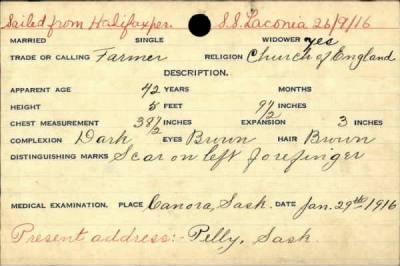 Sailed from Halifax per. S.S. Laconia 26/9/16
MARRIED SINGLE WIDOWER yes
TRADE OR CALLING Farmer RELIGION Church of England
DESCRIPTION.
APPARENT AGE 42 YEARS MONTHS
HEIGHT 5 FEET 9½ INCHES
CHEST MEASUREMENT 38½ INCHES EXPANSION 3 INCHES
COMPLEXION Dark EYES Brown HAIR Brown
DISTINGUISHING MARKS Scar on left forefinger
MEDICAL EXAMINATION. PLACE Canora, Sask. DATE Jan. 29th 1916
Present address:- Pelly, Sask.